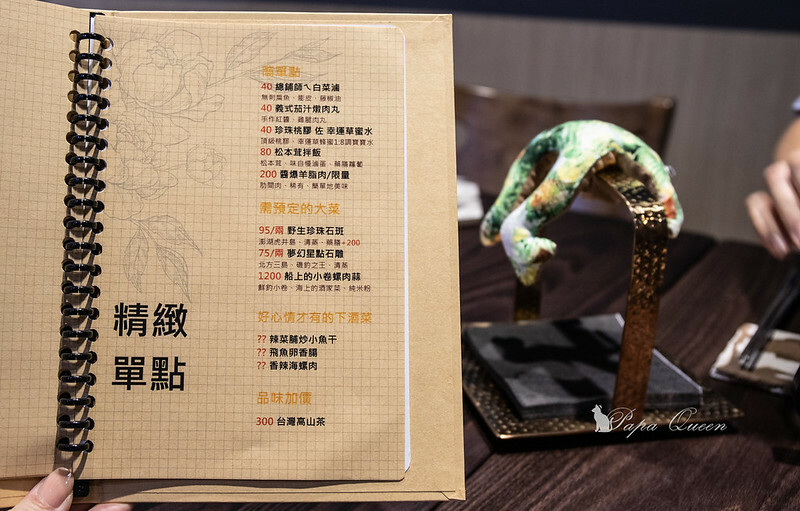 精緻
單點
簡單點
40 總鋪師ㄟ白菜滷
無刺扁魚、蛋皮、藤椒油
40 義式茄汁燉肉丸
手作紅醬、雞腿肉丸
40 珍珠桃膠 佐 幸運草蜜水
頂級桃膠、幸運草蜂蜜1:8調寶寶水
80 松本茸拌飯
松本茸、味自慢滷蛋、藥膳蘿蔔
200 醬爆羊脂肉/限量
肋間肉、稀有、簡單地美味
需預定的大菜
95/兩 野生珍珠石斑
澎湖虎井島、清蒸、藥膳+200
75/兩 夢幻星點石雕
北方三島、磯釣之王、清蒸
1200 船上的小卷螺肉蒜
鮮釣小卷、海上的酒家菜、純米粉
好心情才有的下酒菜
?? 辣菜脯炒小魚干
?? 飛魚卵香腸
?? 香辣海螺肉
品味加價
300 台灣高山茶
Papa Queen